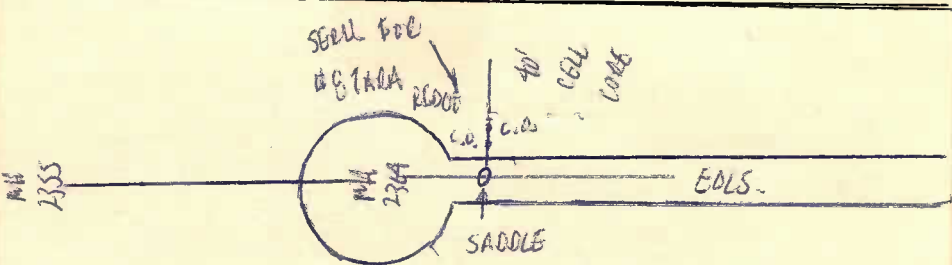 SERV. FOR
#8 TARA
40'
CELL
CORE
C.O. C.O.
MH
2355
MH
2364
EOLS.
SADDLE